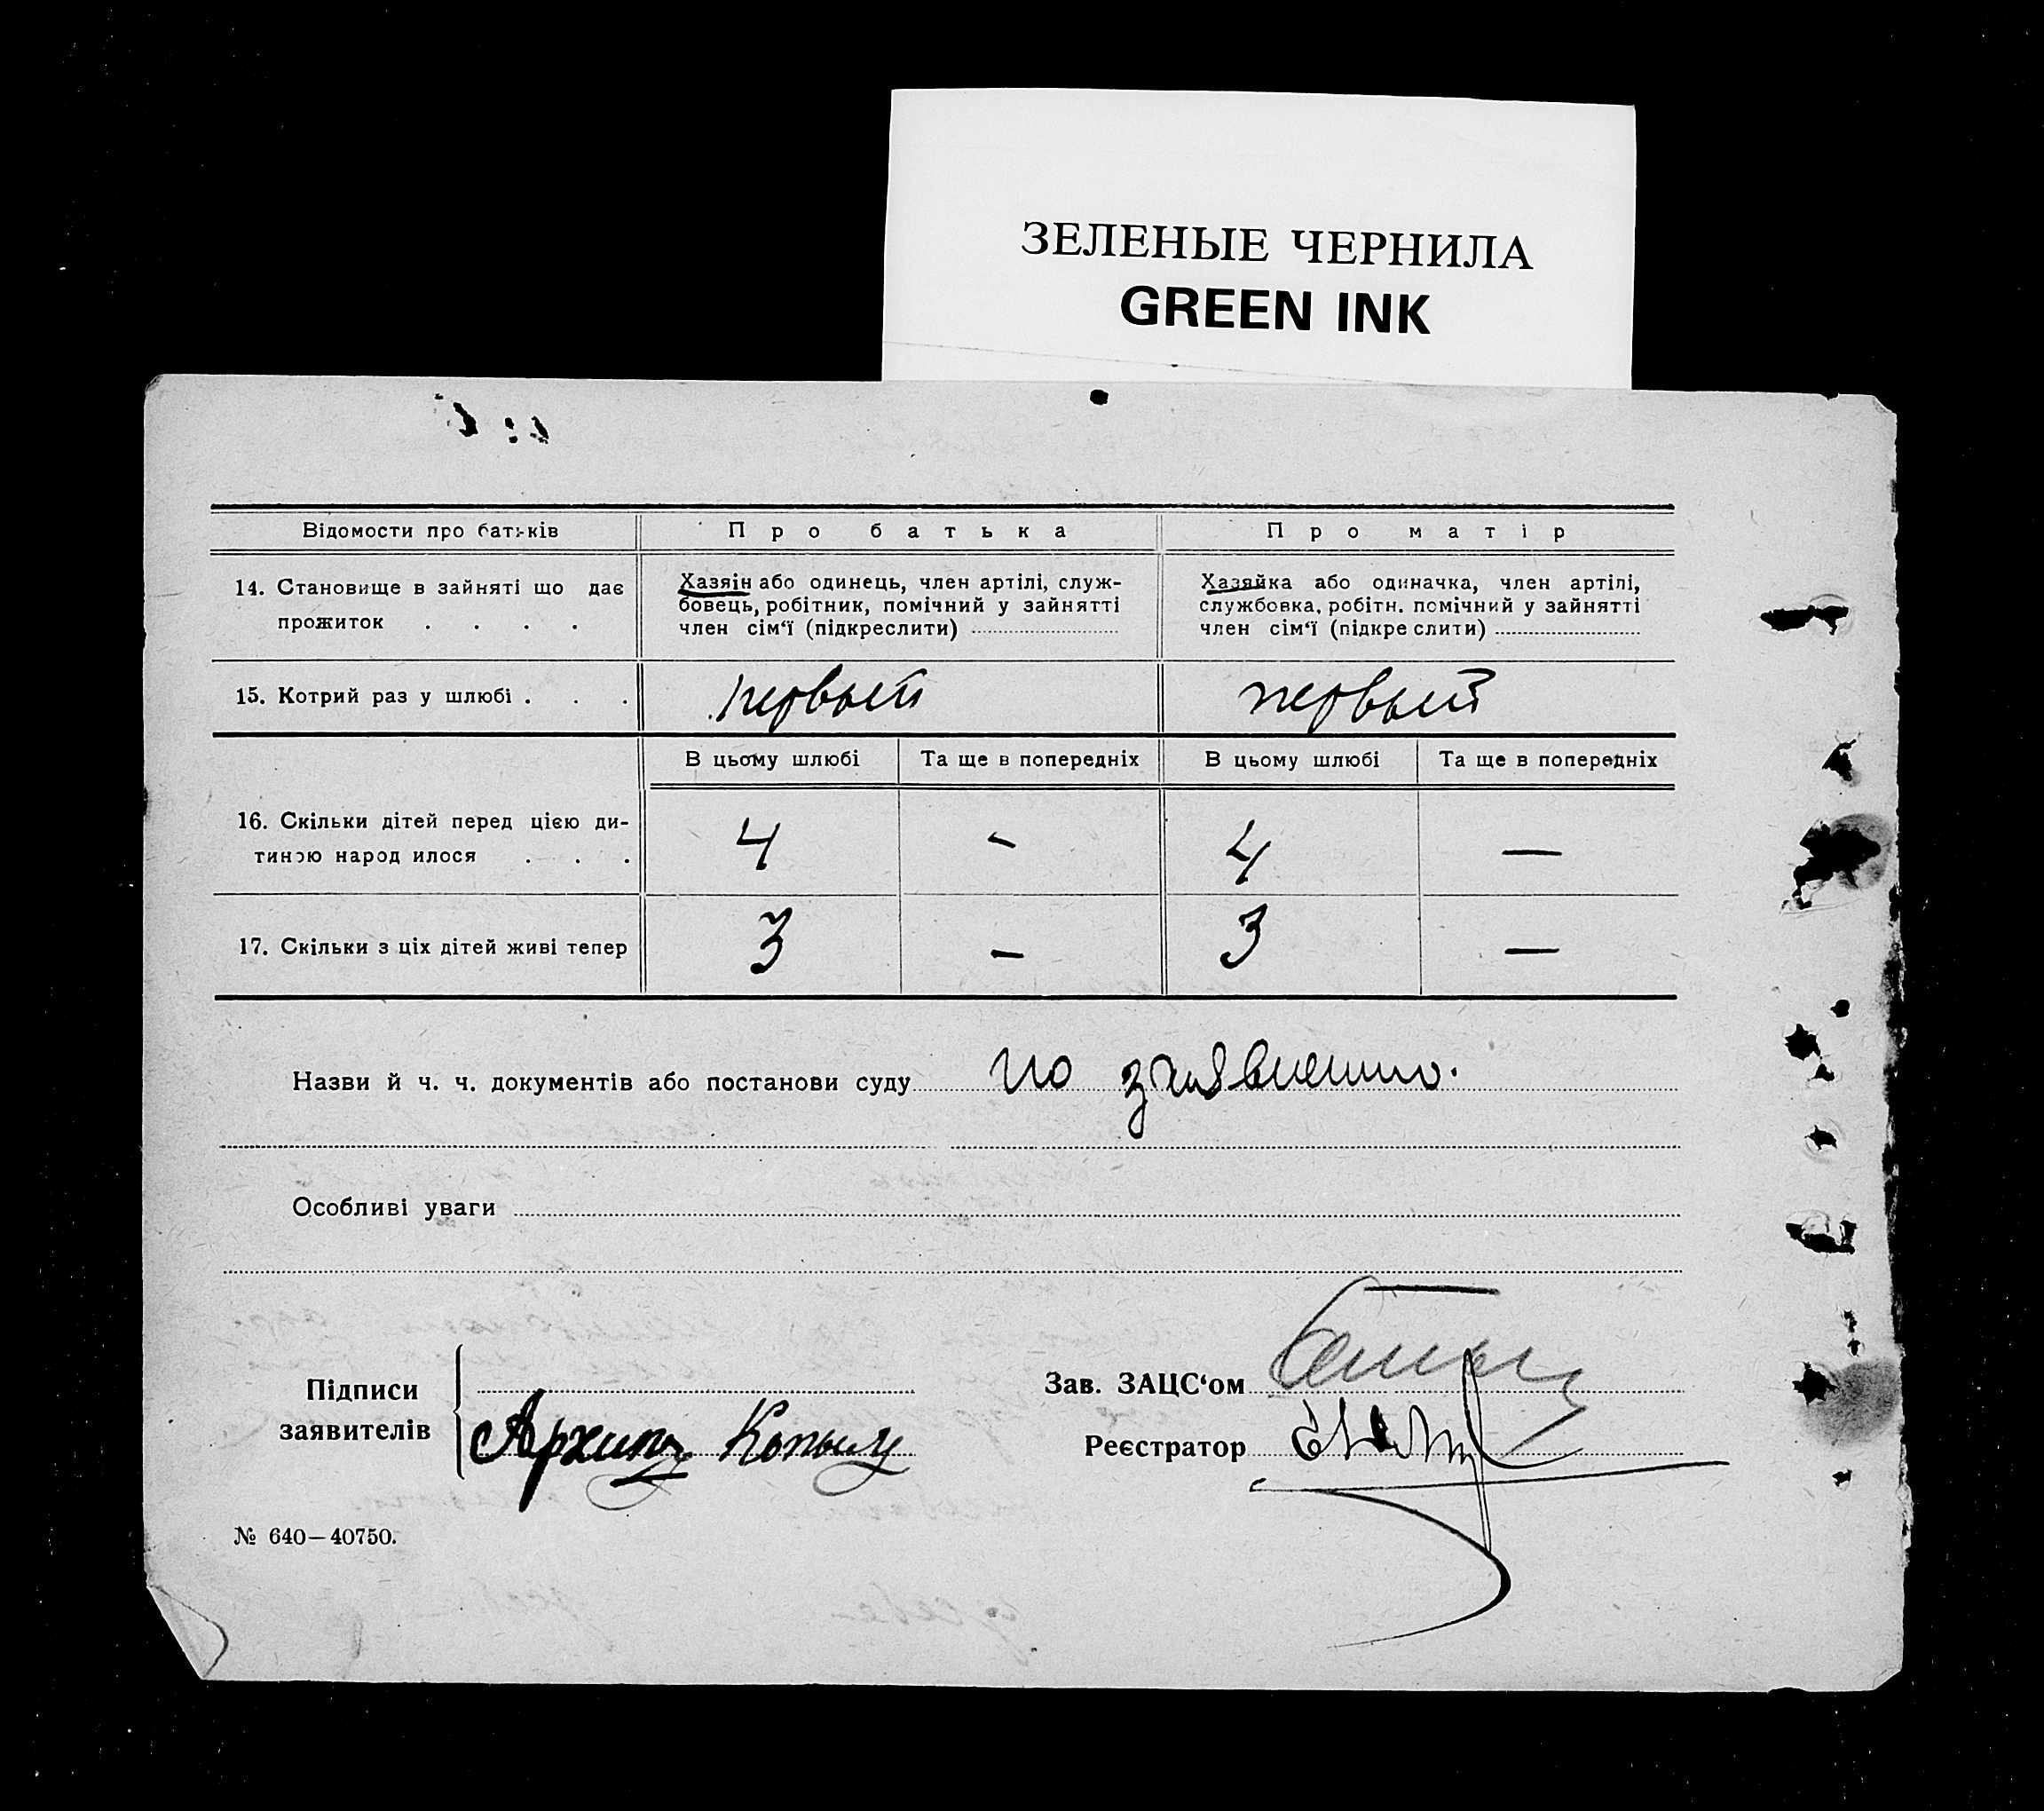 ЗЕЛЕНЫЕ ЧЕРНИЛА
GREEN INK
Відомости про батьків
Про батька
Про матір
14. Становище в зайняті що дає
прожиток . . . .
Хазяін або одинець, член артілі, служ-
бовець, робітник, помічний у зайнятті
член сім‘ї (підкреслити)
Хазяйка або одиначка, член артілі,
службовка, робітн. помічний у зайнятті
член сім‘ї (підкреслити)
15. Котрий раз у шлюбі . . .
первый
первый
В цьому шлюбі
Та ще в попередніх
В цьому шлюбі
Та ще в попередніх
16. Скільки дітей перед цією ди-
тиною народилося . . .
4
-
4
—
17. Скільки з ціх дітей живі тепер
3
-
3
—
Назви й ч. ч. документів або постанови суду по заявлению.
Особливі уваги
Підписи
заявителів
Архипъ Копыл
Зав. ЗАЦС‘ом
Реєстратор
№ 640—40750.